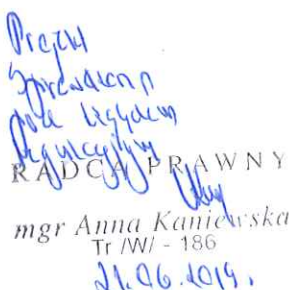 Projekt
sprawdzono
pod względem
RADCA PRAWNY
mgr Anna Kaniewska
Tr /W/ - 186
21.06.2019.